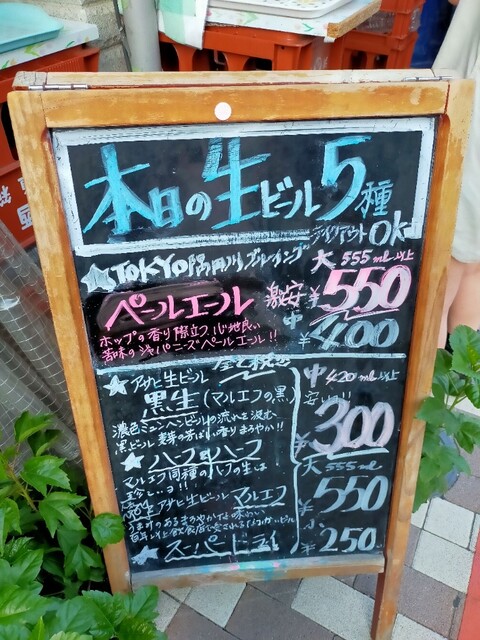 本日の生ビール5種
テイクアウトOK
★TOKYO隅田川ブルーイング
ペールエール
ホップの香り際立つ心地良い
苦味のジャパニーズペールエール!!
大 555ml以上
激安¥550
中¥400
全て税込
★アサヒ生ビール
黒生(マルエフの黒)
濃色ミュンヘンビールの流れを汲む
黒ビール 麦芽の香ばしい香りまろやか!!
★ハーフ&ハーフ
マルエフ同種のハーフの生は
珍しいヨ!!
アサヒ生ビール マルエフ
★スーパードライ
中 420ml以上
安い!!
¥300
大 555ml
¥550
小
¥250